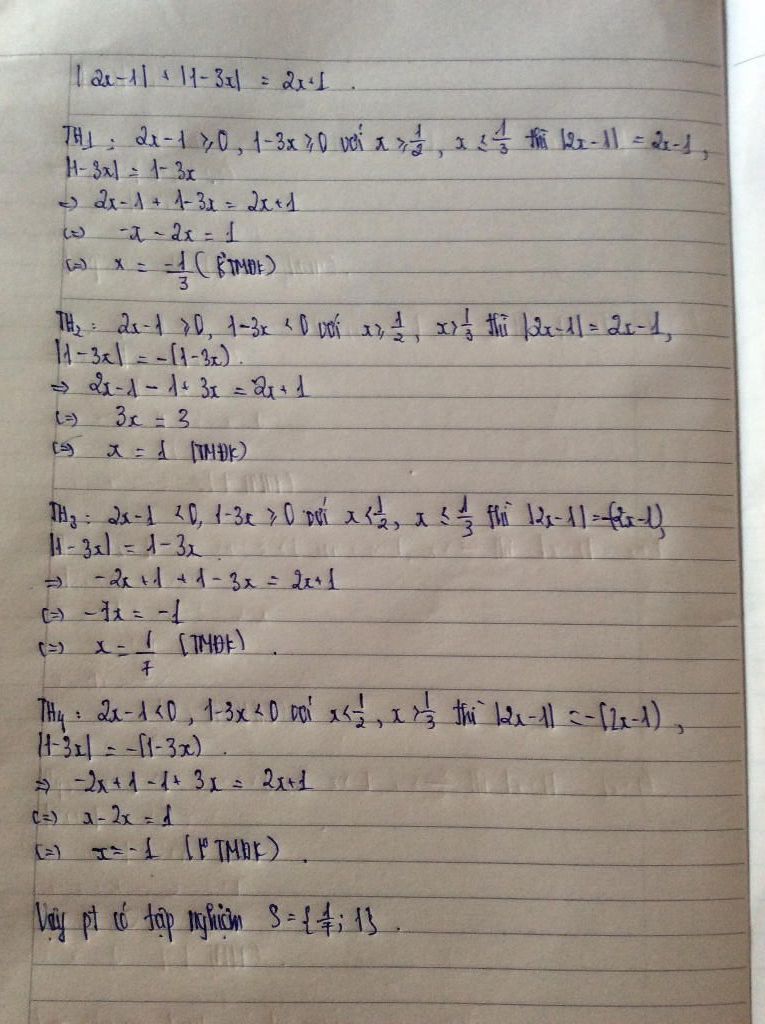 |2x-1| + |1-3x| = 2x+1 .
TH1 : 2x-1 ⩾0, 1-3x ⩾0 với x ⩾ 1/2, x ≤ 1/3 thì |2x-1| = 2x-1,
|1-3x| = 1-3x
=> 2x-1 + 1-3x = 2x+1
(=) -x - 2x = 1
(=) x = -1/3 (ko TMĐK)
TH2 : 2x-1 ⩾0, 1-3x <0 với x⩾ 1/2, x> 1/3 thì |2x-1| = 2x-1,
|1-3x| = -(1-3x).
=> 2x-1 - 1 + 3x = 2x+1
(=) 3x = 3
(=) x = 1 (TMĐK)
TH3 : 2x-1 <0, 1-3x ⩾0 với x< 1/2, x ≤ 1/3 thì |2x-1| = -(2x-1),
|1-3x| = 1-3x
=> -2x+1 + 1-3x = 2x+1
(=) -7x = -1
(=) x = 1/7 (TMĐK) .
TH4 : 2x-1<0, 1-3x<0 với x< 1/2, x> 1/3 thì |2x-1| = -(2x-1),
|1-3x| = -(1-3x) .
=> -2x+1 -1+ 3x = 2x+1
(=) x-2x = 1
(=) x=-1 (ko TMĐK) .
Vậy pt có tập nghiệm S = {1/7; 1} .